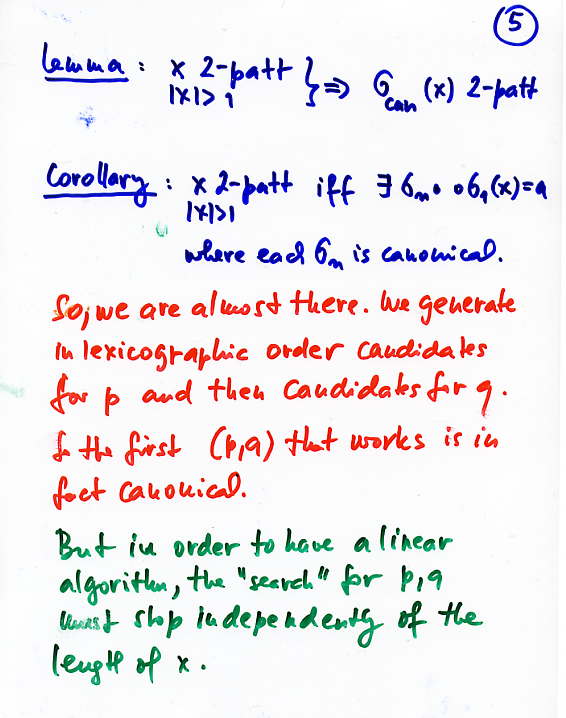 5
Lemma : x 2-patt } ⇒ σcan (x) 2-patt
|x|>1
Corollary : x 2-patt iff ∃ σn∘ ∘σ1(x)=a
|x|>1
where each σn is canonical.
So, we are almost there. We generate
in lexicographic order candidates
for p and then candidates for q.
& the first (p,q) that works is in
fact canonical.
But in order to have a linear
algorithm, the "search" for p,q
must stop independently of the
length of x.